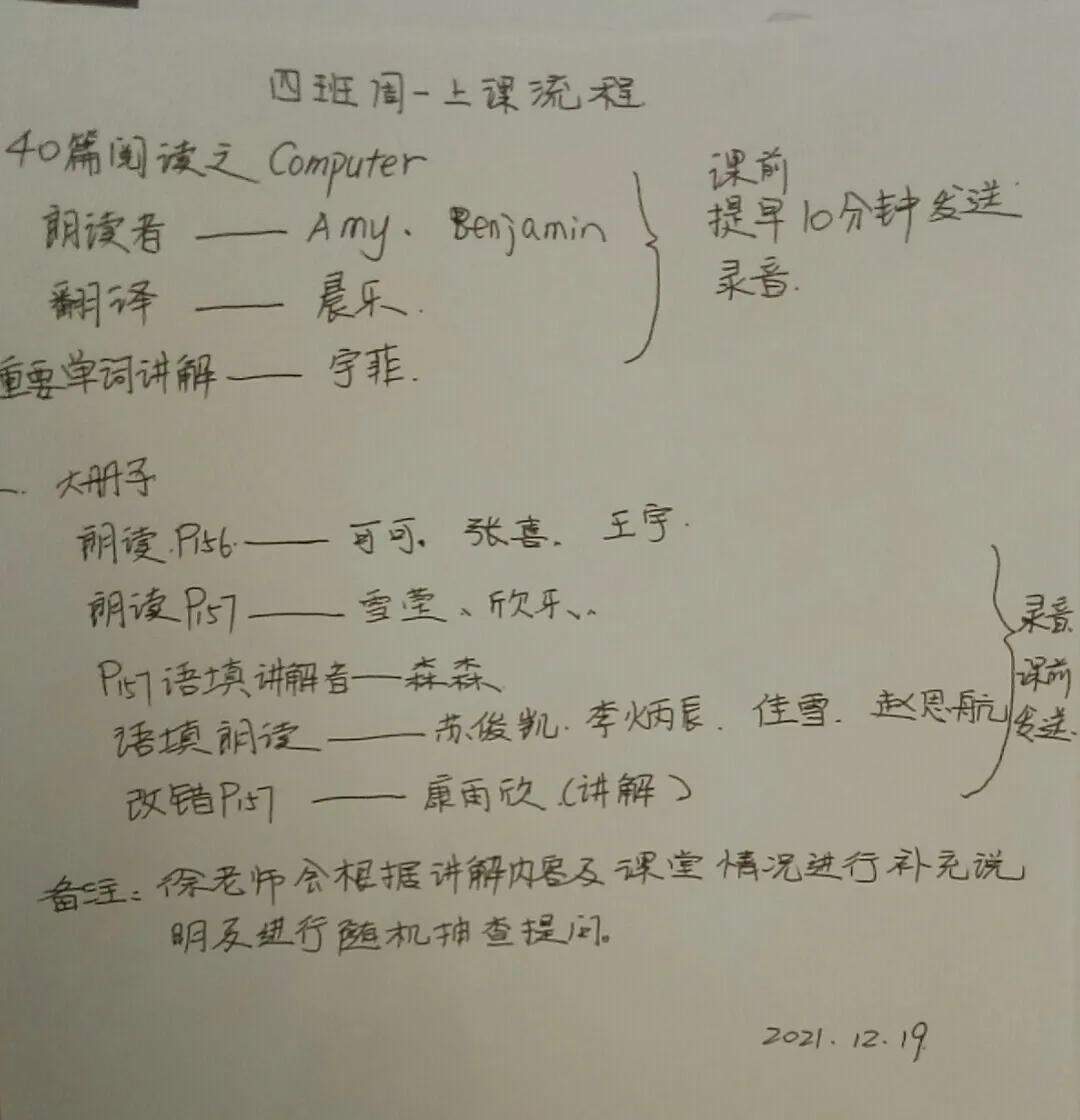 四班周一上课流程
40篇阅读之 Computer
朗读者 —— Amy、Benjamin
翻译 —— 晨乐.
重要单词讲解 —— 宇菲.
课前
提早10分钟发送
录音.
一. 大册子
朗读.P156. —— 可可。张喜. 王宇.
朗读P157 —— 雪莹、欣乐、
P157语填讲解者——森森
语填朗读 —— 苏俊凯. 李炳辰. 佳雪. 赵思航
改错P157 —— 康雨欣.(讲解)
录音
课前
发送.
备注: 徐老师会根据讲解内容及课堂情况进行补充说
明及进行随机抽查提问。
2021.12.19